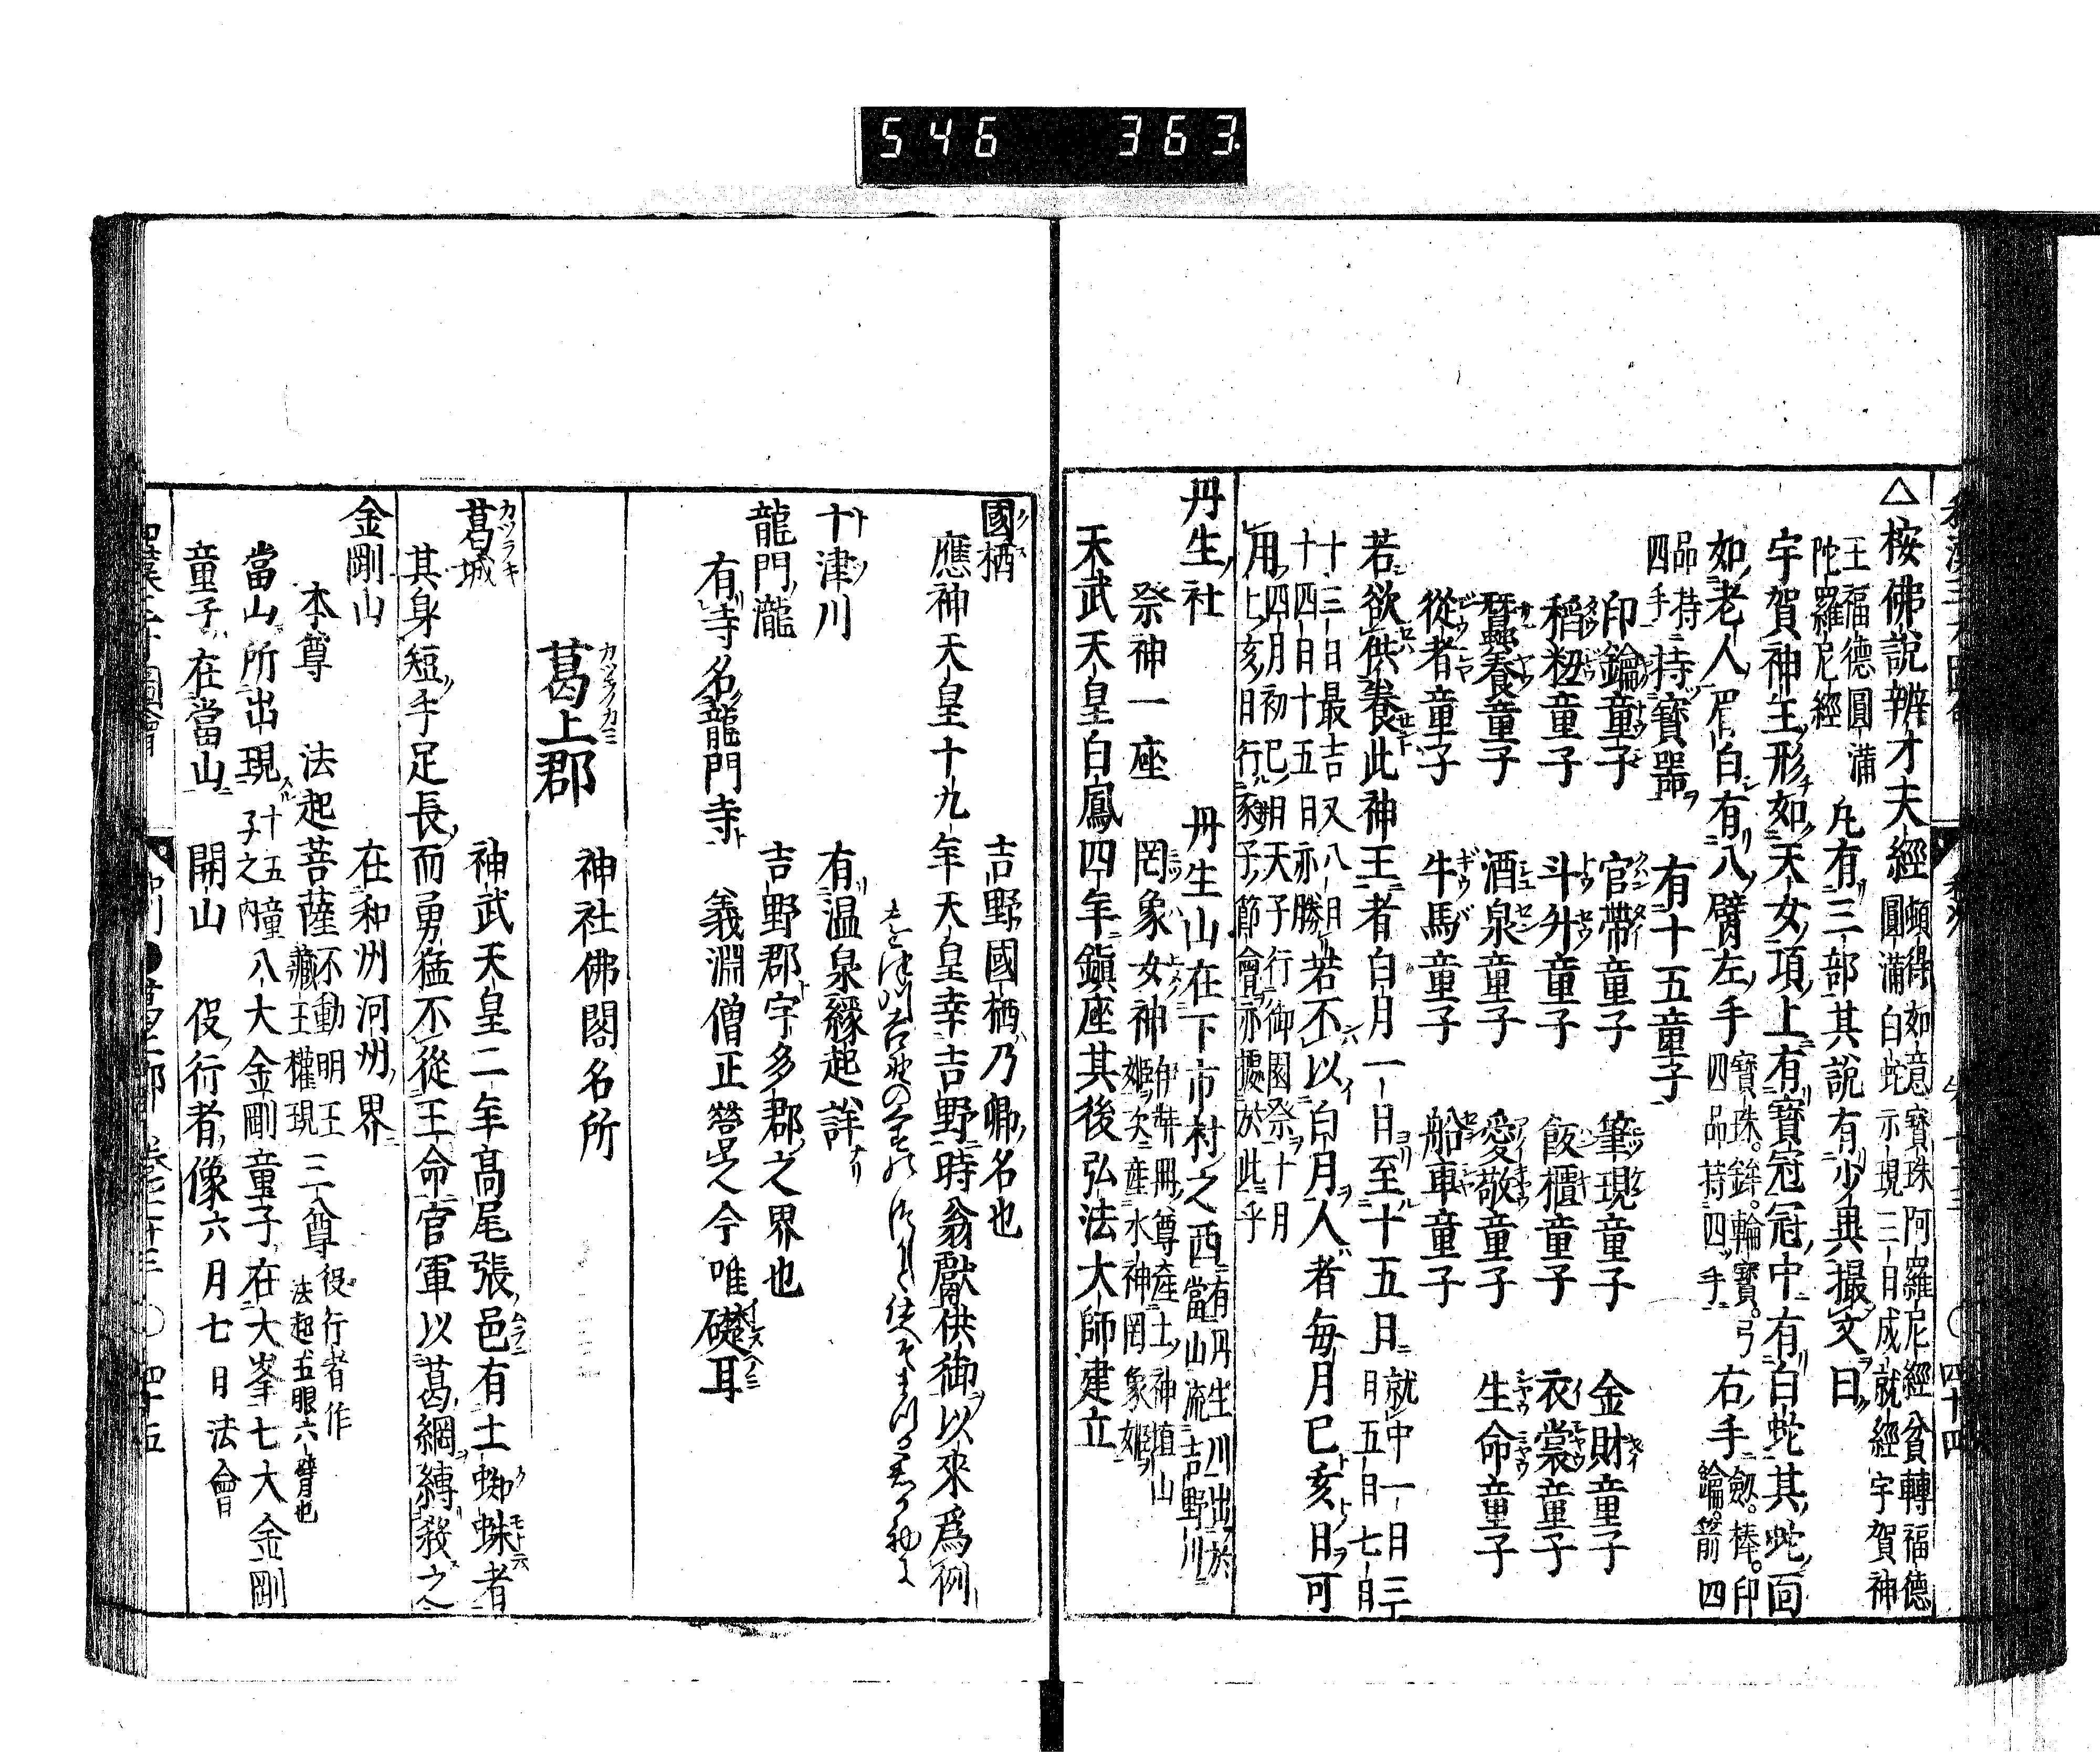 546 363
△按佛說辨才天經 頓得如意寳珠 阿羅尼經 貧轉福德
圓滿白蛇示現三日成就經 宇賀神
王福德圓滿
陀羅尼經 凡有三部其說有少異撮文曰
宇賀神王形如天女頂上有寳冠冠中有白蛇其蛇面
如老人眉白有八臂左手 寳珠。鉾。輪寳。弓 右手 劔。棒。印
四品持四手 鑰。箭 四
品持
四手 持寳噐 有十五童子
印鑰童子 官帶童子 筆現童子 金財童子
稻籾童子 斗升童子 飯櫃童子 衣裳童子
蠶養童子 酒泉童子 愛敬童子 生命童子
從者童子 牛馬童子 船車童子
若欲供養此神王者白月一日至十五月 就中一日三
日五日七日
十三日最吉又八月
十四日十五日亦勝 若不以白月人者每月巳亥日可
用 四月初巳明天子行御園祭十月
上亥日行豕子節會亦據於此乎
丹生社 丹生山在下市村之西 有丹生川出於
當山流吉野川
祭神一座 罔象女神 伊弉冊尊產土神埴山
姬次產水神罔象姬
天武天皇白鳳四年鎭座其後弘法大師建立
四十四
國栖 吉野國栖乃鄕名也
應神天皇十九年天皇幸吉野時翁獻供御以來爲例
十津川 有温泉緣起詳
龍門瀧 吉野郡宇多郡之界也
有寺名龍門寺 義淵僧正營之今唯礎耳
葛上郡 神社佛閣名所
葛城 神武天皇二年高尾張邑有土蜘蛛者
其身短手足長而勇猛不從王命官軍以葛網縳殺之
金剛山 在和洲河州界
本尊 法起菩薩 不動明王
藏王權現 三尊 役行者作
法起五眼六臂也
當山所出現 十五童
子之內 八大金剛童子在大峯七大金剛
童子在當山 開山 役行者像六月七日法會